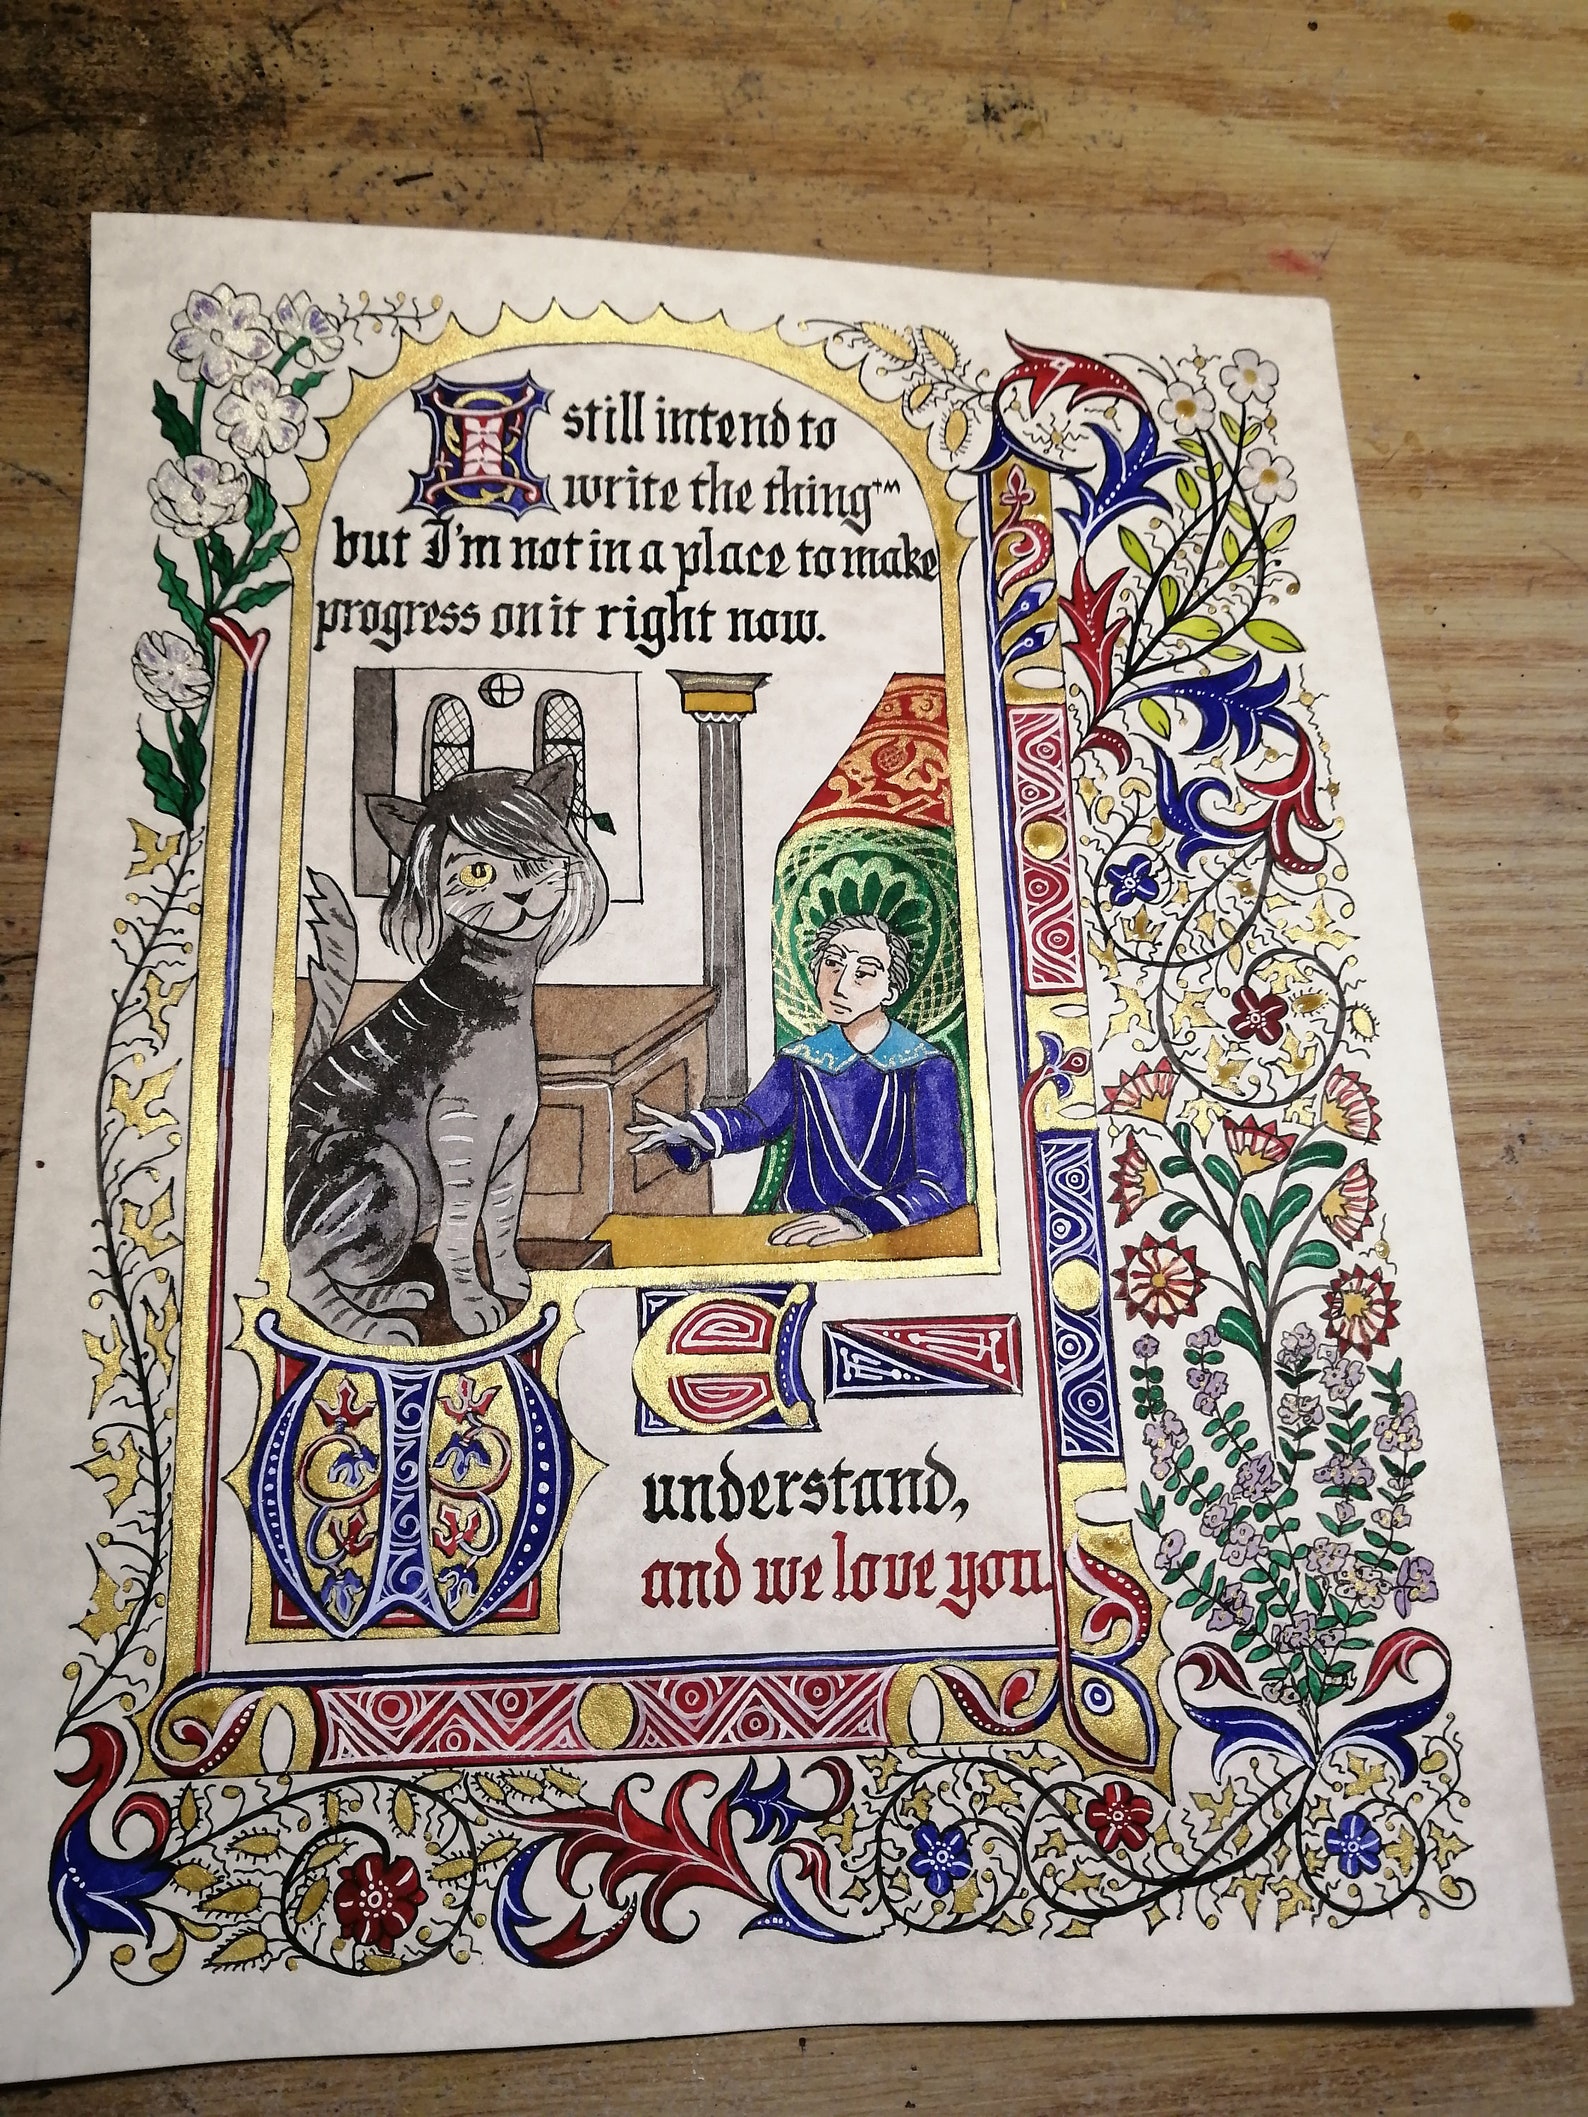 I still intend to
write the thing™
but I'm not in a place to make
progress on it right now.
WE
understand,
and we love you.